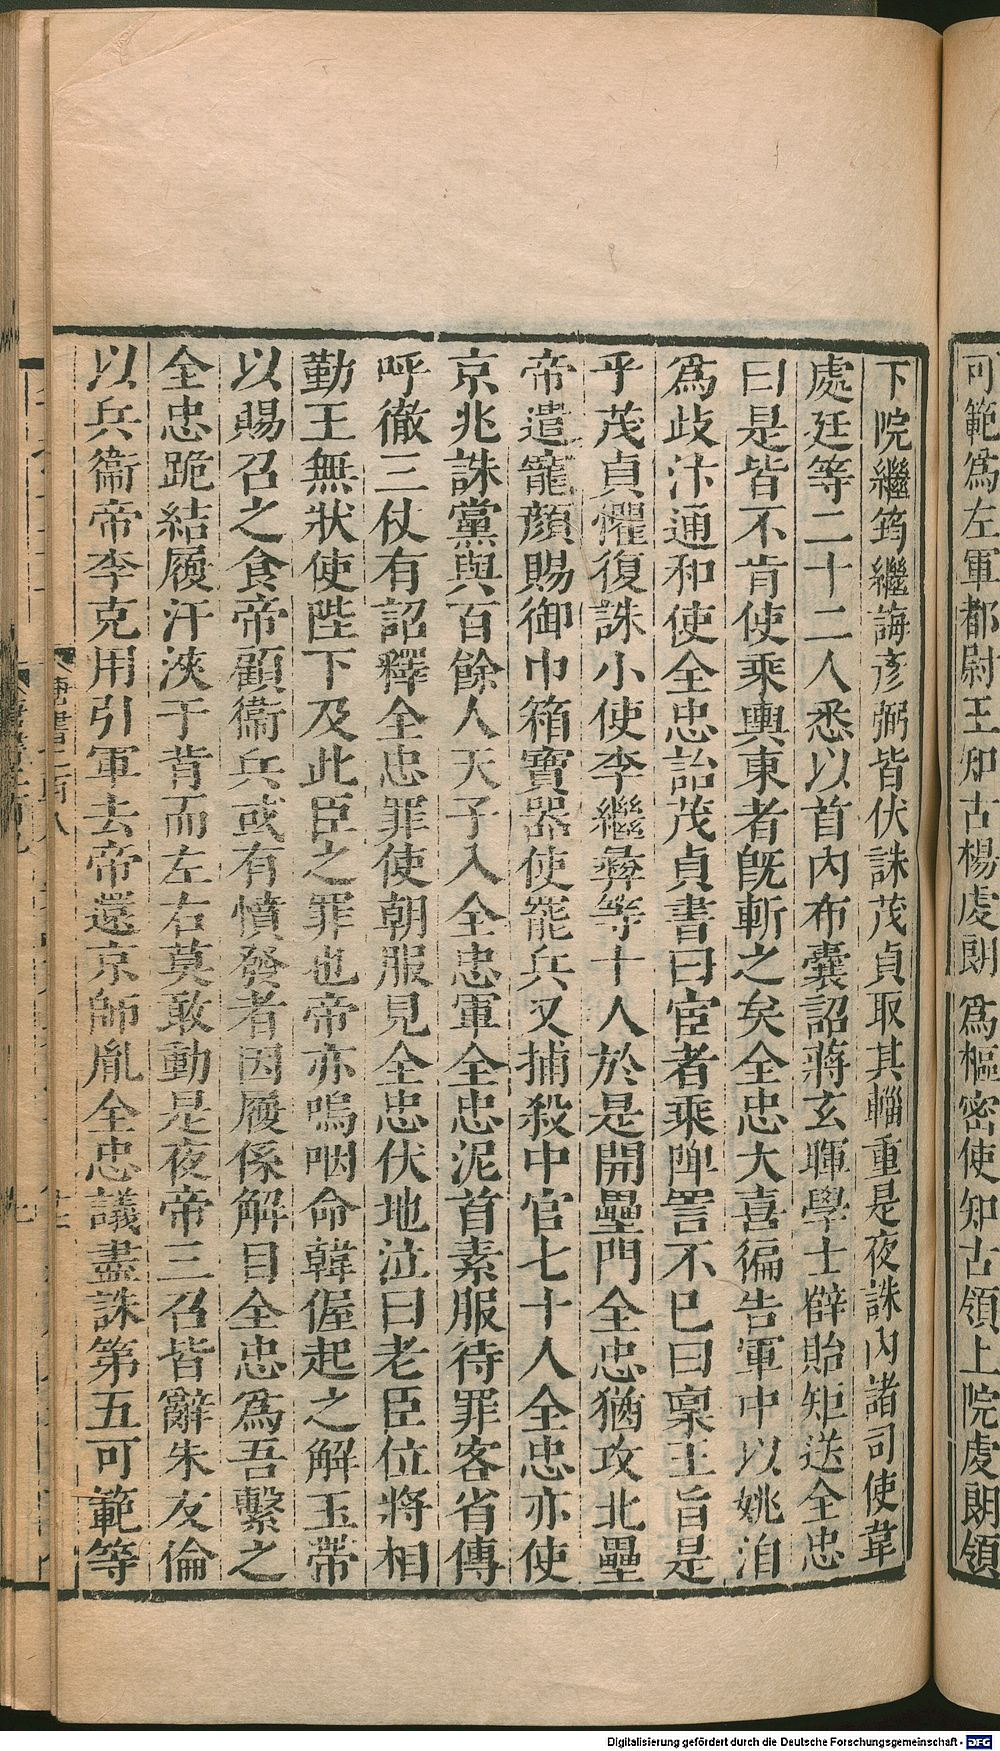 可範爲左軍都尉王知古楊虔朗爲樞密使知古領上院虔朗領
下院繼筠繼誨彥弼皆伏誅茂貞取其輜重是夜誅內諸司使韋
處廷等二十二人悉以首內布囊詔蔣玄暉學士薛貽矩送全忠
曰是皆不肯使乘輿東者旣斬之矣全忠大喜徧告軍中以姚洎
爲歧汴通和使全忠詒茂貞書曰宦者乘陴詈不已曰稟王旨是
乎茂貞懼復誅小使李繼彝等十人於是開壘門全忠猶攻北壘
帝遣寵顏賜御巾箱寶器使罷兵又捕殺中官七十人全忠亦使
京兆誅黨與百餘人天子入全忠軍全忠泥首素服待罪客省傳
呼徹三仗有詔釋全忠罪使朝服見全忠伏地泣曰老臣位將相
勤王無狀使陛下及此臣之罪也帝亦嗚咽命韓偓起之解玉帶
以賜召之食帝顧衞兵或有憤發者因履係解目全忠爲吾繫之
全忠跪結履汗浹于背而左右莫敢動是夜帝三召皆辭朱友倫
以兵衞帝李克用引軍去帝還京師胤全忠議盡誅第五可範等
唐書二百八
Digitalisierung gefördert durch die Deutsche Forschungsgemeinschaft - DFG